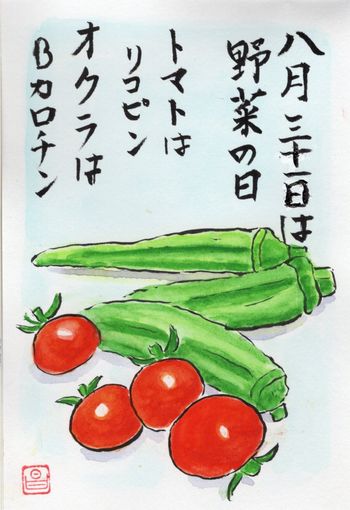 八月三十一日は
野菜の日
トマトは
リコピン
オクラは
Bカロチン